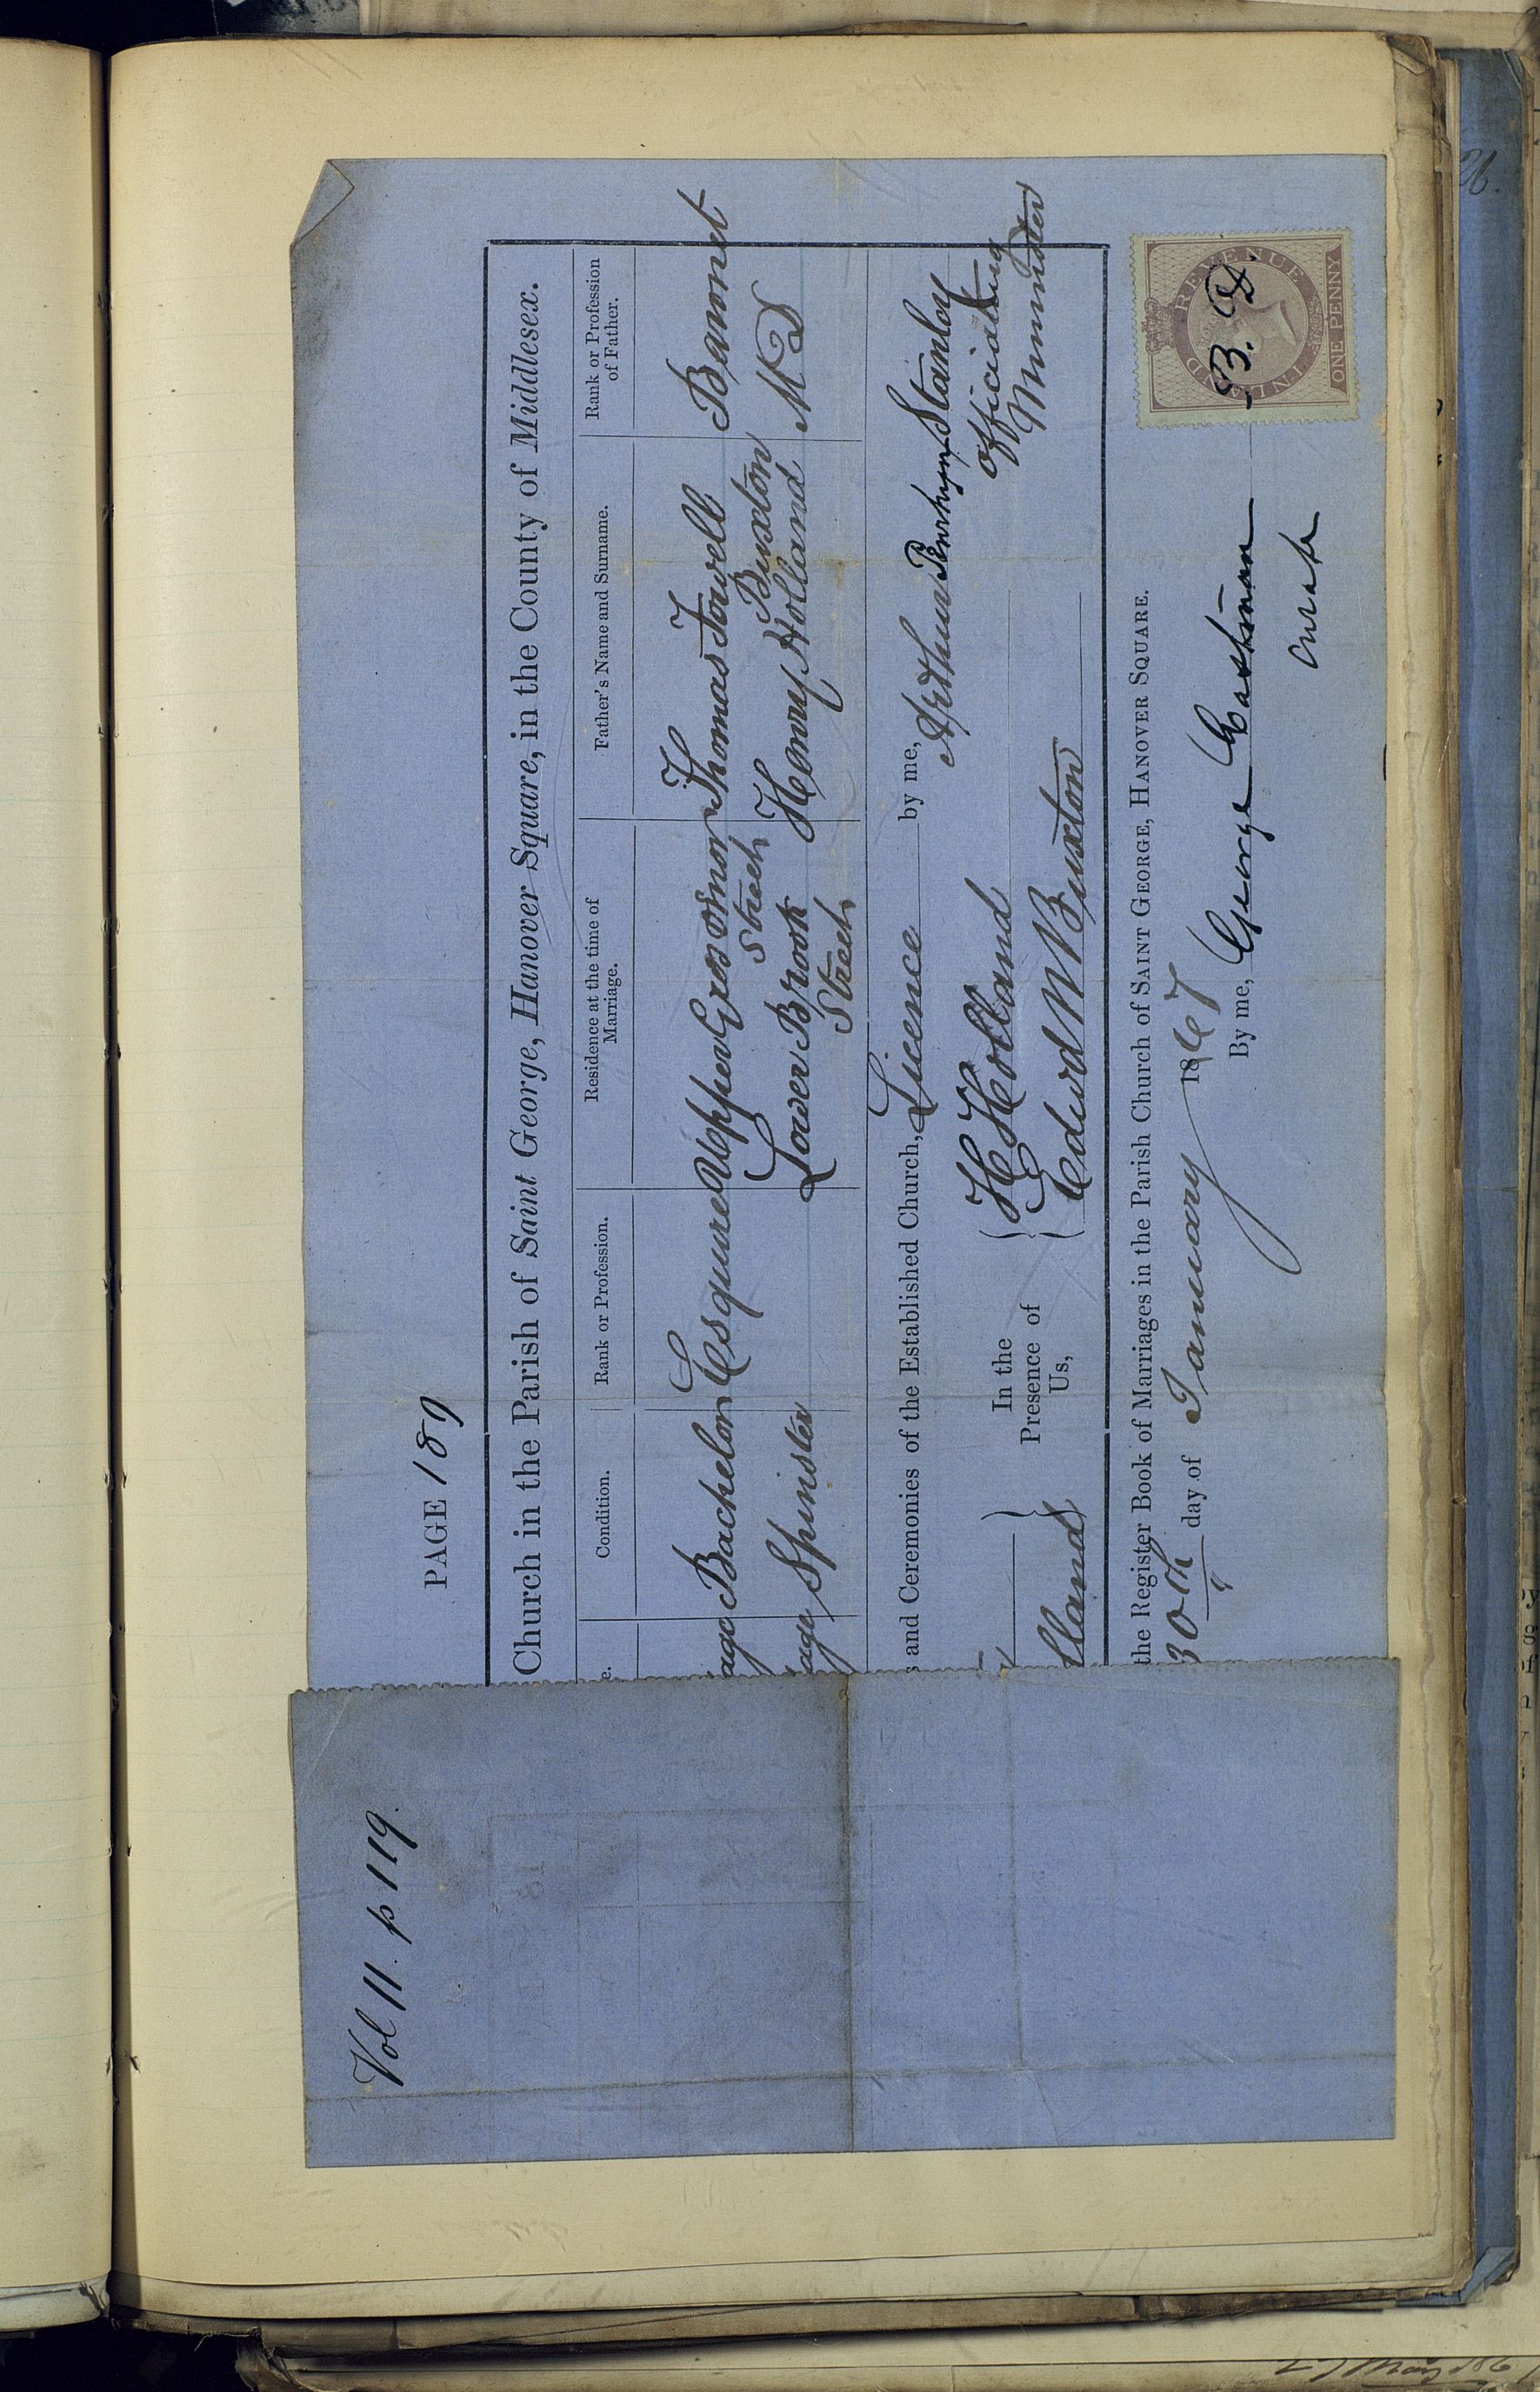 Vol 11. p 119.
PAGE 189
Church in the Parish of Saint George, Hanover Square, in the County of Middlesex.
e. Condition. Rank or Profession. Residence at the time of Marriage. Father's Name and Surname. Rank or Profession of Father.
age Bachelor Esquire Upper Grosvenor Street Thomas Fowell Buxton Baronet
age Spinster Lower Brook Street Henry Holland M D
and Ceremonies of the Established Church, Licence by me, Arthur Penrhyn Stanley
officiating
Minister
In the
Presence of
Us,
H Holland
lland
Edwd N Buxton
the Register Book of Marriages in the Parish Church of SAINT GEORGE, HANOVER SQUARE.
30th day of January 1867
By me, George Eastman
Curate
INLAND REVENUE
ONE PENNY
26.